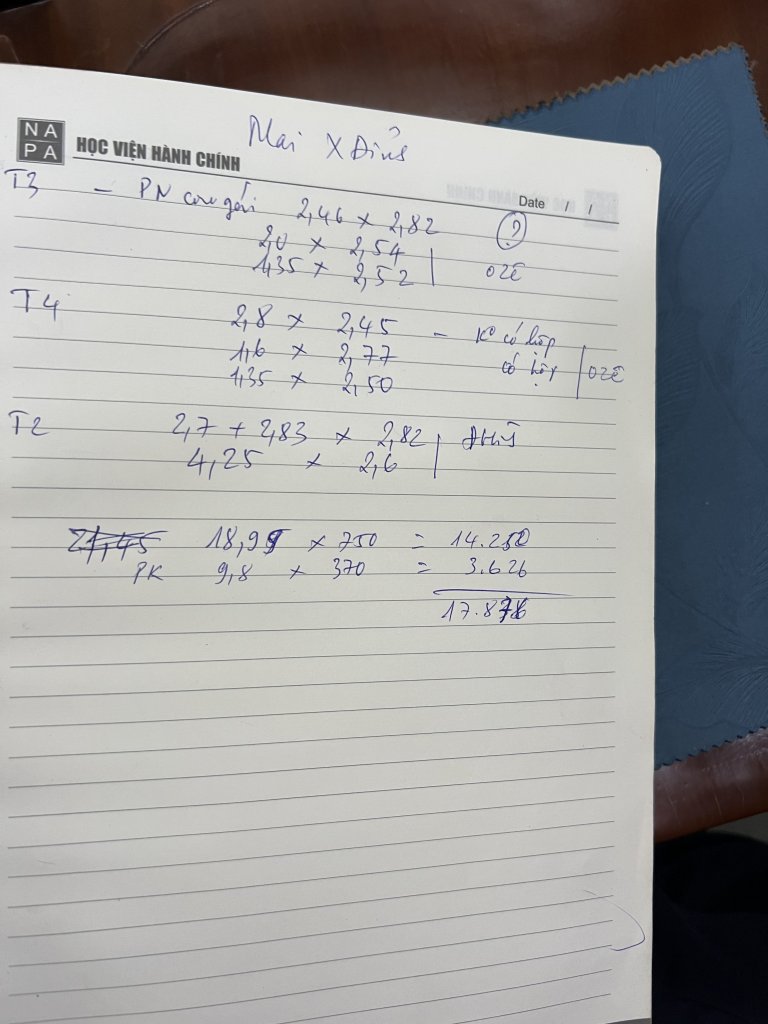 Mai X Đỉnh
NA
PA
HỌC VIỆN HÀNH CHÍNH
Date / /
T3 - PN con gái 2,46 x 2,82 (?)
2,0 x 2,54
1,35 x 2,52 | OZE
T4 2,8 x 2,45 - Ko có hộp
1,6 x 2,77 có hộp | OZE
1,35 x 2,50
T2 2,7 + 2,83 x 2,82
4,25 x 2,6
21,45 18,99 x 750 = 14.250
PK 9,8 x 370 = 3.626
17.876